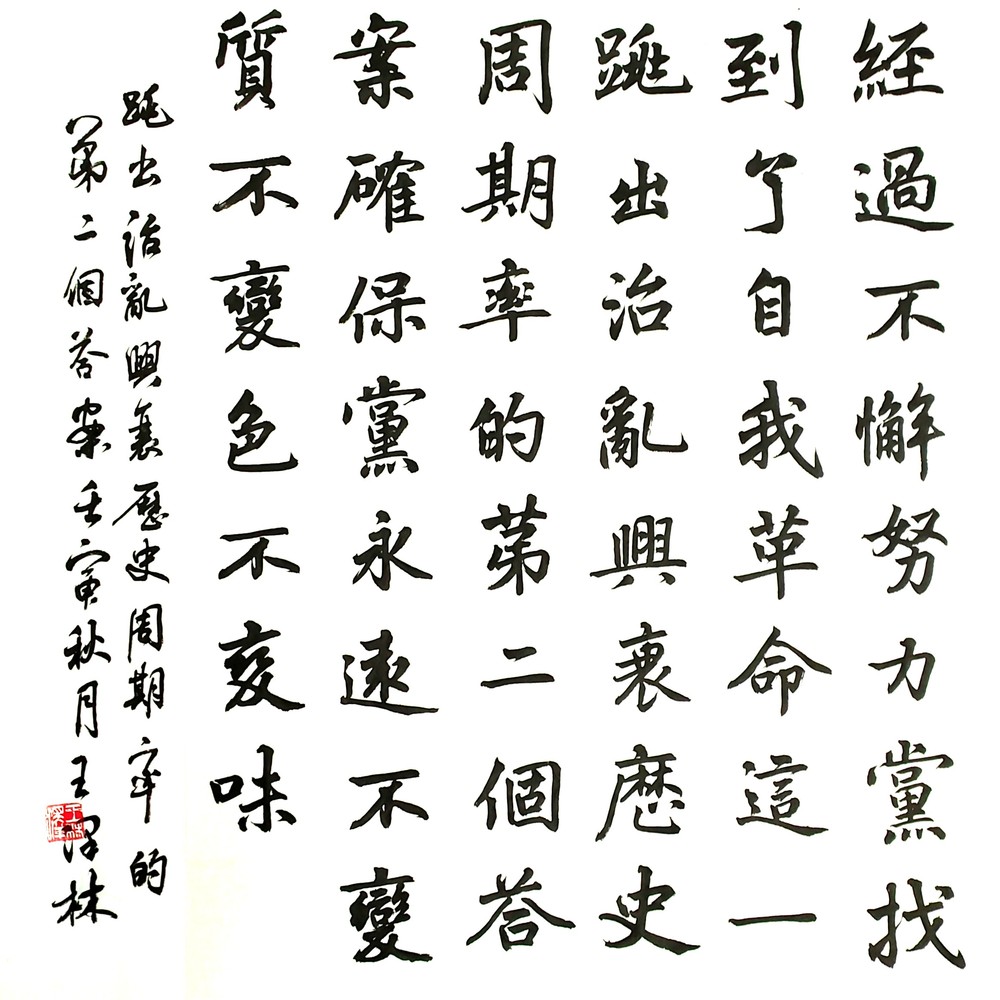 經過不懈努力黨找
到了自我革命這一
跳出治亂興衰歷史
周期率的第二個荅
案確保黨永遠不變
質不變色不变味
跳出治亂興衰歷史周期率的
第二個荅案壬寅秋月王澤林